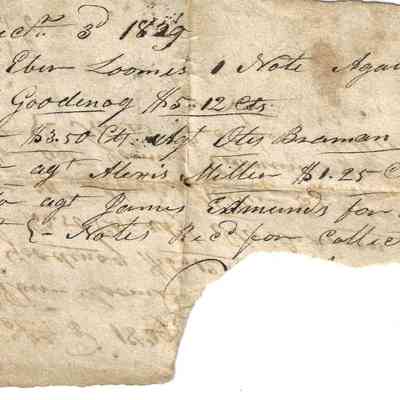 3d 1829
Eber Loomis 1 Note Agai
Goodenog $5.12 Cts
$3.50 Cts Agt Otis Braman
agt Alexis Miller $1.25 C
agt James Edmunds for
Notes Recd for Collec